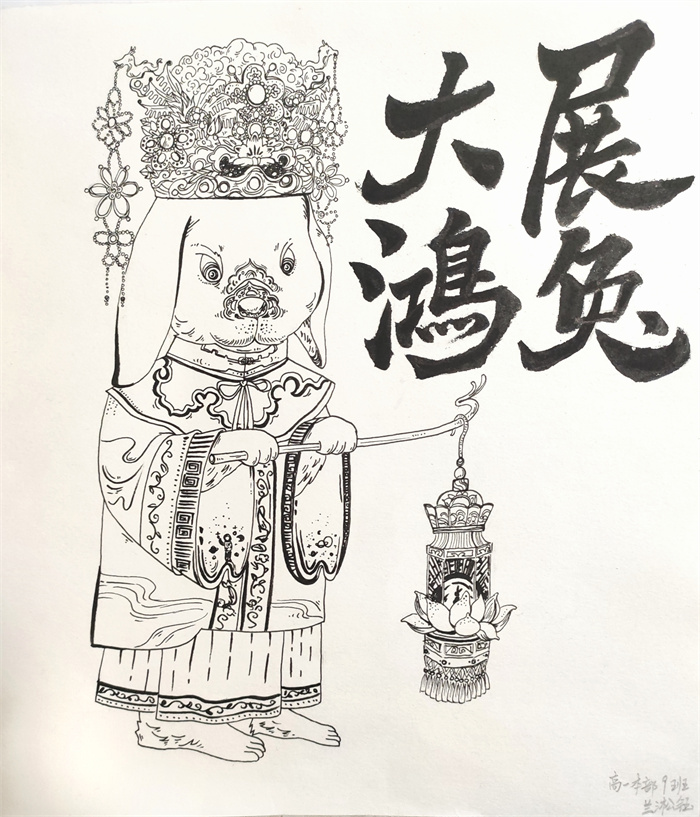 大展
鸿兔
高一本部9班
兰